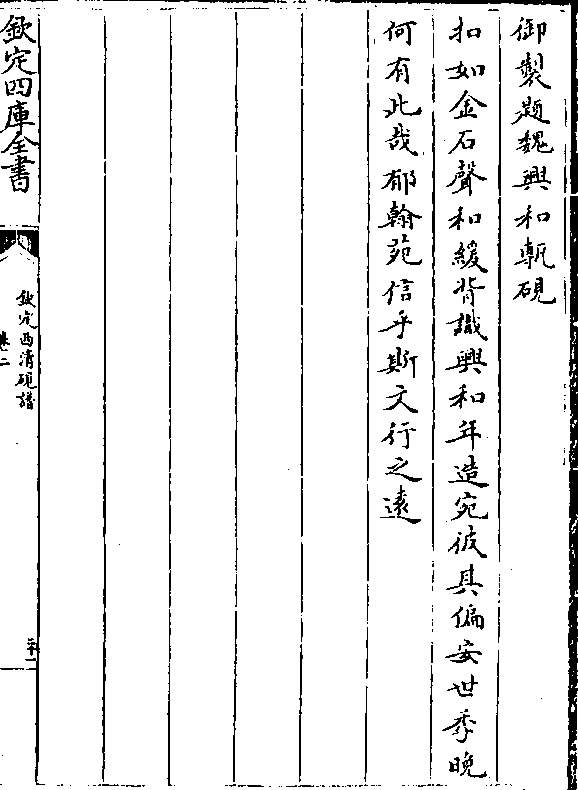 御製題魏興和甎硯
扣如金石聲和緩背識興和年造宛彼其偏安世季晚
何有此哉郁翰苑信乎斯文行之遠
欽定四庫全書
欽定西清硯譜
卷二